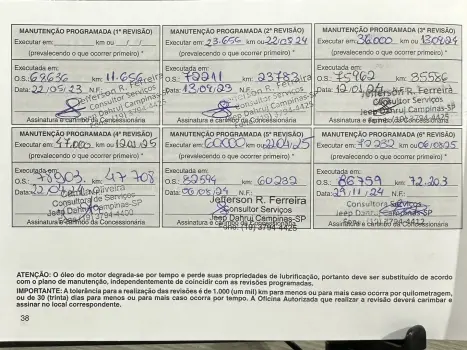 MANUTENÇÃO PROGRAMADA (1ª REVISÃO)
Executar em: km ou / /
(prevalecendo o que ocorrer primeiro) *
Executada em:
O.S.: 69636 km: 11.656
Data: 22/05/23 N.F.
Jefferson R. Ferreira
Consultor Serviços
Jeep Dahruj Campinas-SP
Assinatura e carimbo da Concessionária
MANUTENÇÃO PROGRAMADA (2ª REVISÃO)
Executar em: 23.656 km ou 22/05/24
(prevalecendo o que ocorrer primeiro) *
Executada em:
O.S.: 72211 km: 23783
Data: 13/09/23 N.F.
Consultor Serviços
Jeep Dahruj Campinas-SP
Assinatura e carimbo da Concessionária
MANUTENÇÃO PROGRAMADA (3ª REVISÃO)
Executar em: 36.000 km ou 13/09/24
(prevalecendo o que ocorrer primeiro) *
Executada em:
O.S.: 75962 km: 35586
Data: 12/01/24 N.F.
Jefferson R. Ferreira
Consultor Serviços
Jeep Dahruj Campinas-SP
Assinatura e carimbo da Concessionária
MANUTENÇÃO PROGRAMADA (4ª REVISÃO)
Executar em: 47.000 km ou 12/01/25
(prevalecendo o que ocorrer primeiro) *
Executada em:
O.S.: 78803 km: 47 708
Data: 22/04/24
Oliveira
Consultora de Serviços
Jeep Dahruj Campinas-SP
Assinatura e carimbo da Concessionária
MANUTENÇÃO PROGRAMADA (5ª REVISÃO)
Executar em: 60000 km ou 22/04/25
(prevalecendo o que ocorrer primeiro) *
Executada em:
O.S.: 82594 km: 60232
Data: 06/08/24 N.F.
Jefferson R. Ferreira
Consultor Serviços
Jeep Dahruj Campinas-SP
Assinatura e carimbo da Concessionária
MANUTENÇÃO PROGRAMADA (6ª REVISÃO)
Executar em: 72232 km ou 06/08/25
(prevalecendo o que ocorrer primeiro) *
Executada em:
O.S.: 86759 km: 72.203
Data: 29/11/24 N.F.
Consultora Serviços
Jeep Dahruj Campinas-SP
Assinatura e carimbo da Concessionária
ATENÇÃO: O óleo do motor degrada-se por tempo e perde suas propriedades de lubrificação, portanto deve ser substituído de acordo
com o plano de manutenção, independentemente de coincidir com as revisões programadas.
IMPORTANTE: A tolerância para a realização das revisões é de 1.000 (um mil) km para menos ou para mais caso ocorra por quilometragem,
ou de 30 (trinta) dias para menos ou para mais caso ocorra por tempo. A Oficina Autorizada que realizar a revisão deverá carimbar e
assinar no local correspondente.
38